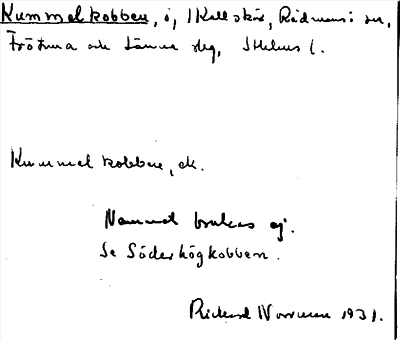 Kummelkobben, ö, i Kallskär, Rådmansö sn,
Frötuna och Länna slg, Sthlms l.
Kummelkobben, ek.
Namnet brukas ej.
Se Söderhögkobben.
Rickard Norrman 1931.